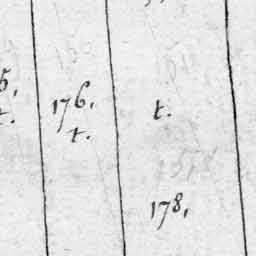 176.
t.
t.
178.